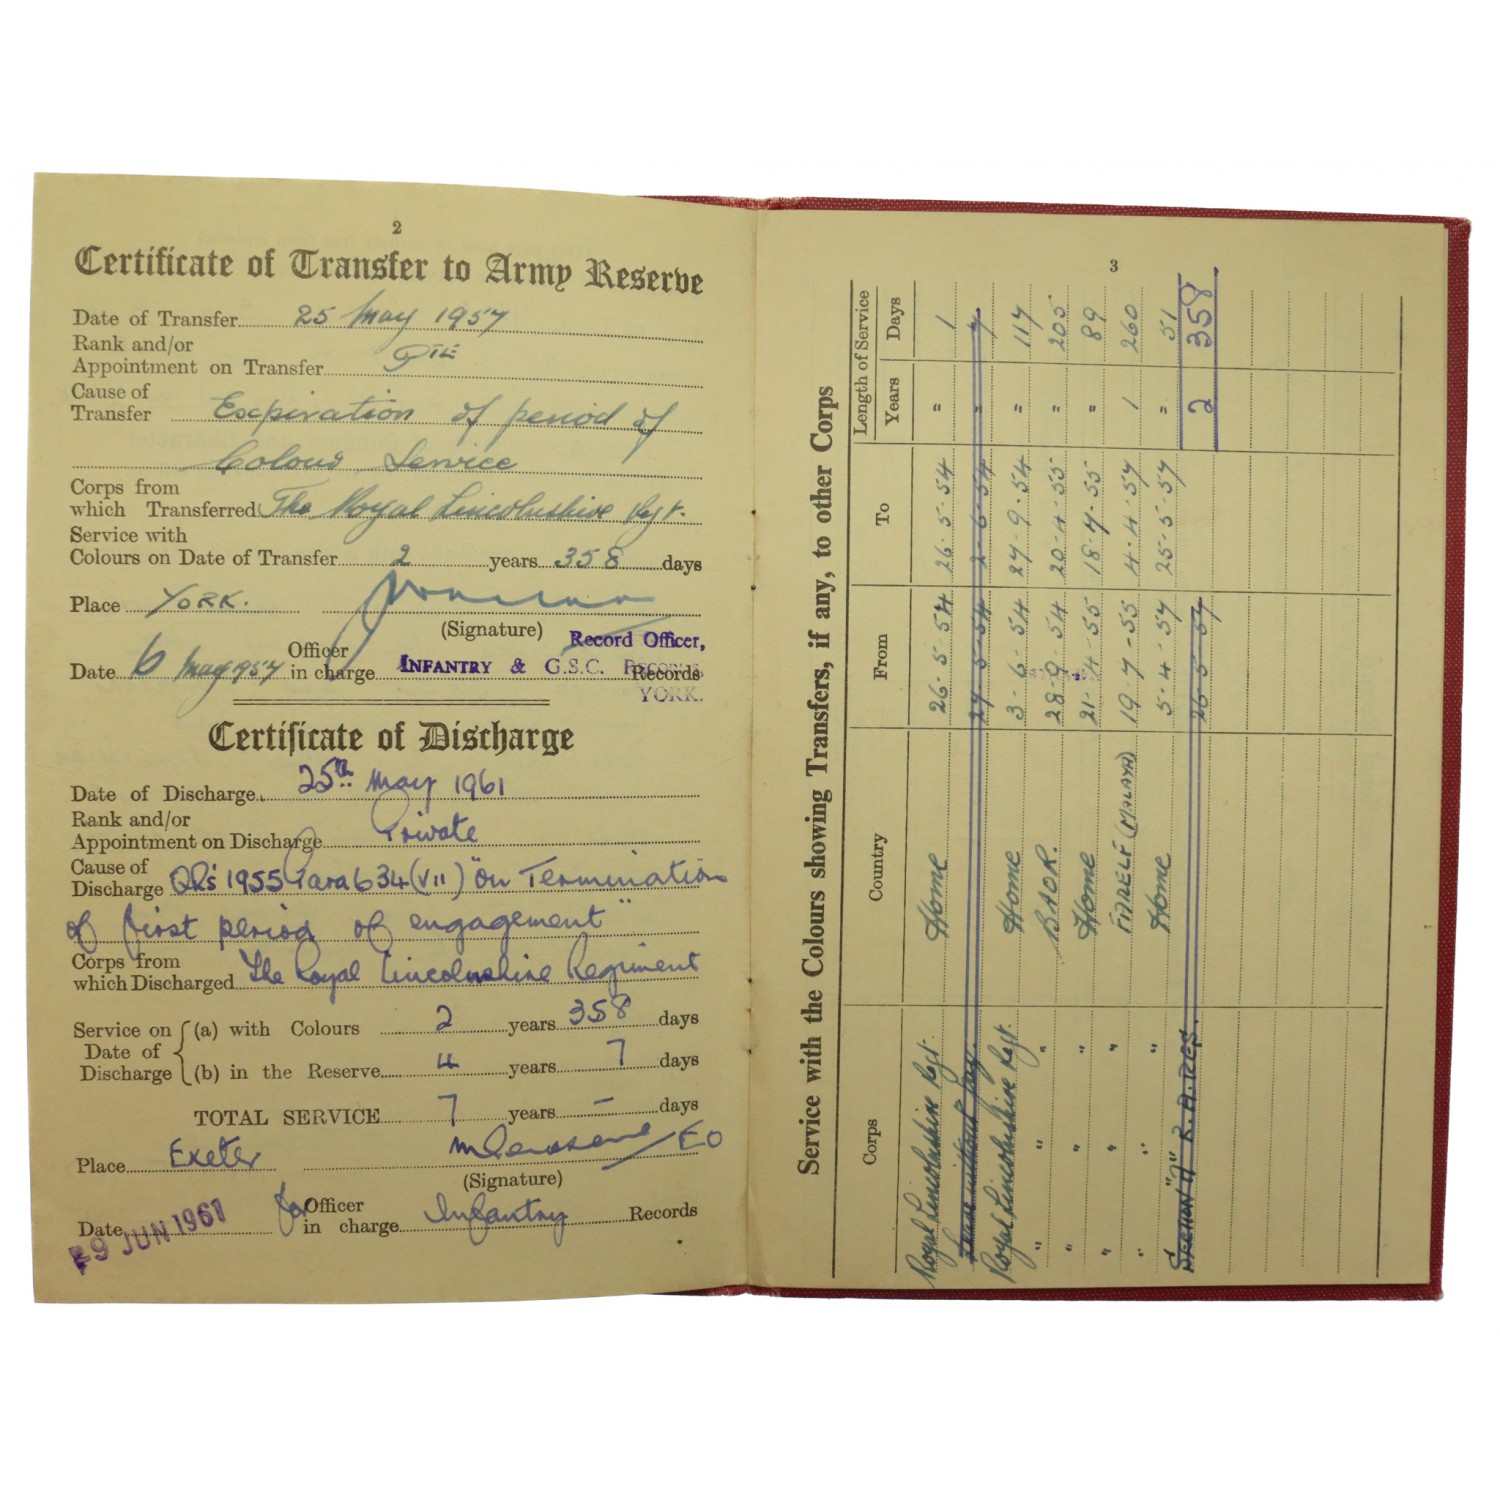 2
Certificate of Transfer to Army Reserve
Date of Transfer 25 May 1957
Rank and/or
Appointment on Transfer PTE
Cause of
Transfer Expiration of period of
Colour Service
Corps from
which Transferred The Royal Lincolnshire Regt.
Service with
Colours on Date of Transfer 2 years 358 days
Place YORK.
(Signature) Record Officer,
Officer
Date 6 May 1957 in charge INFANTRY & G.S.C. RECORDS, Records
YORK.
Certificate of Discharge
Date of Discharge 25th May 1961
Rank and/or
Appointment on Discharge Private
Cause of
Discharge QRs 1955 Para 634 (VII) "On Termination
of first period of engagement"
Corps from
which Discharged The Royal Lincolnshire Regiment
Service on (a) with Colours 2 years 358 days
Date of
Discharge (b) in the Reserve 4 years 7 days
TOTAL SERVICE 7 years – days
Place Exeter EO
(Signature)
for Officer
Date 29 JUN 1961 in charge Infantry Records
3
Service with the Colours showing Transfers, if any, to other Corps
Corps Country From To Length of Service
Years Days
Royal Lincolnshire Regt. Home 26-5-54 26-5-54 " 1
Leave without pay. 27-5-54 2-6-54 " 7
Royal Lincolnshire Regt. Home 3-6-54 27-9-54 " 117
" " " BAOR. 28-9-54 20-4-55 " 205
" " " Home 21-4-55 18-7-55 " 89
" " " FARELF (MALAYA) 19-7-55 4-4-57 1 260
" " " Home 5-4-57 25-5-57 " 51
SECTION "A" R.A.RES. 26-5-57 2 358